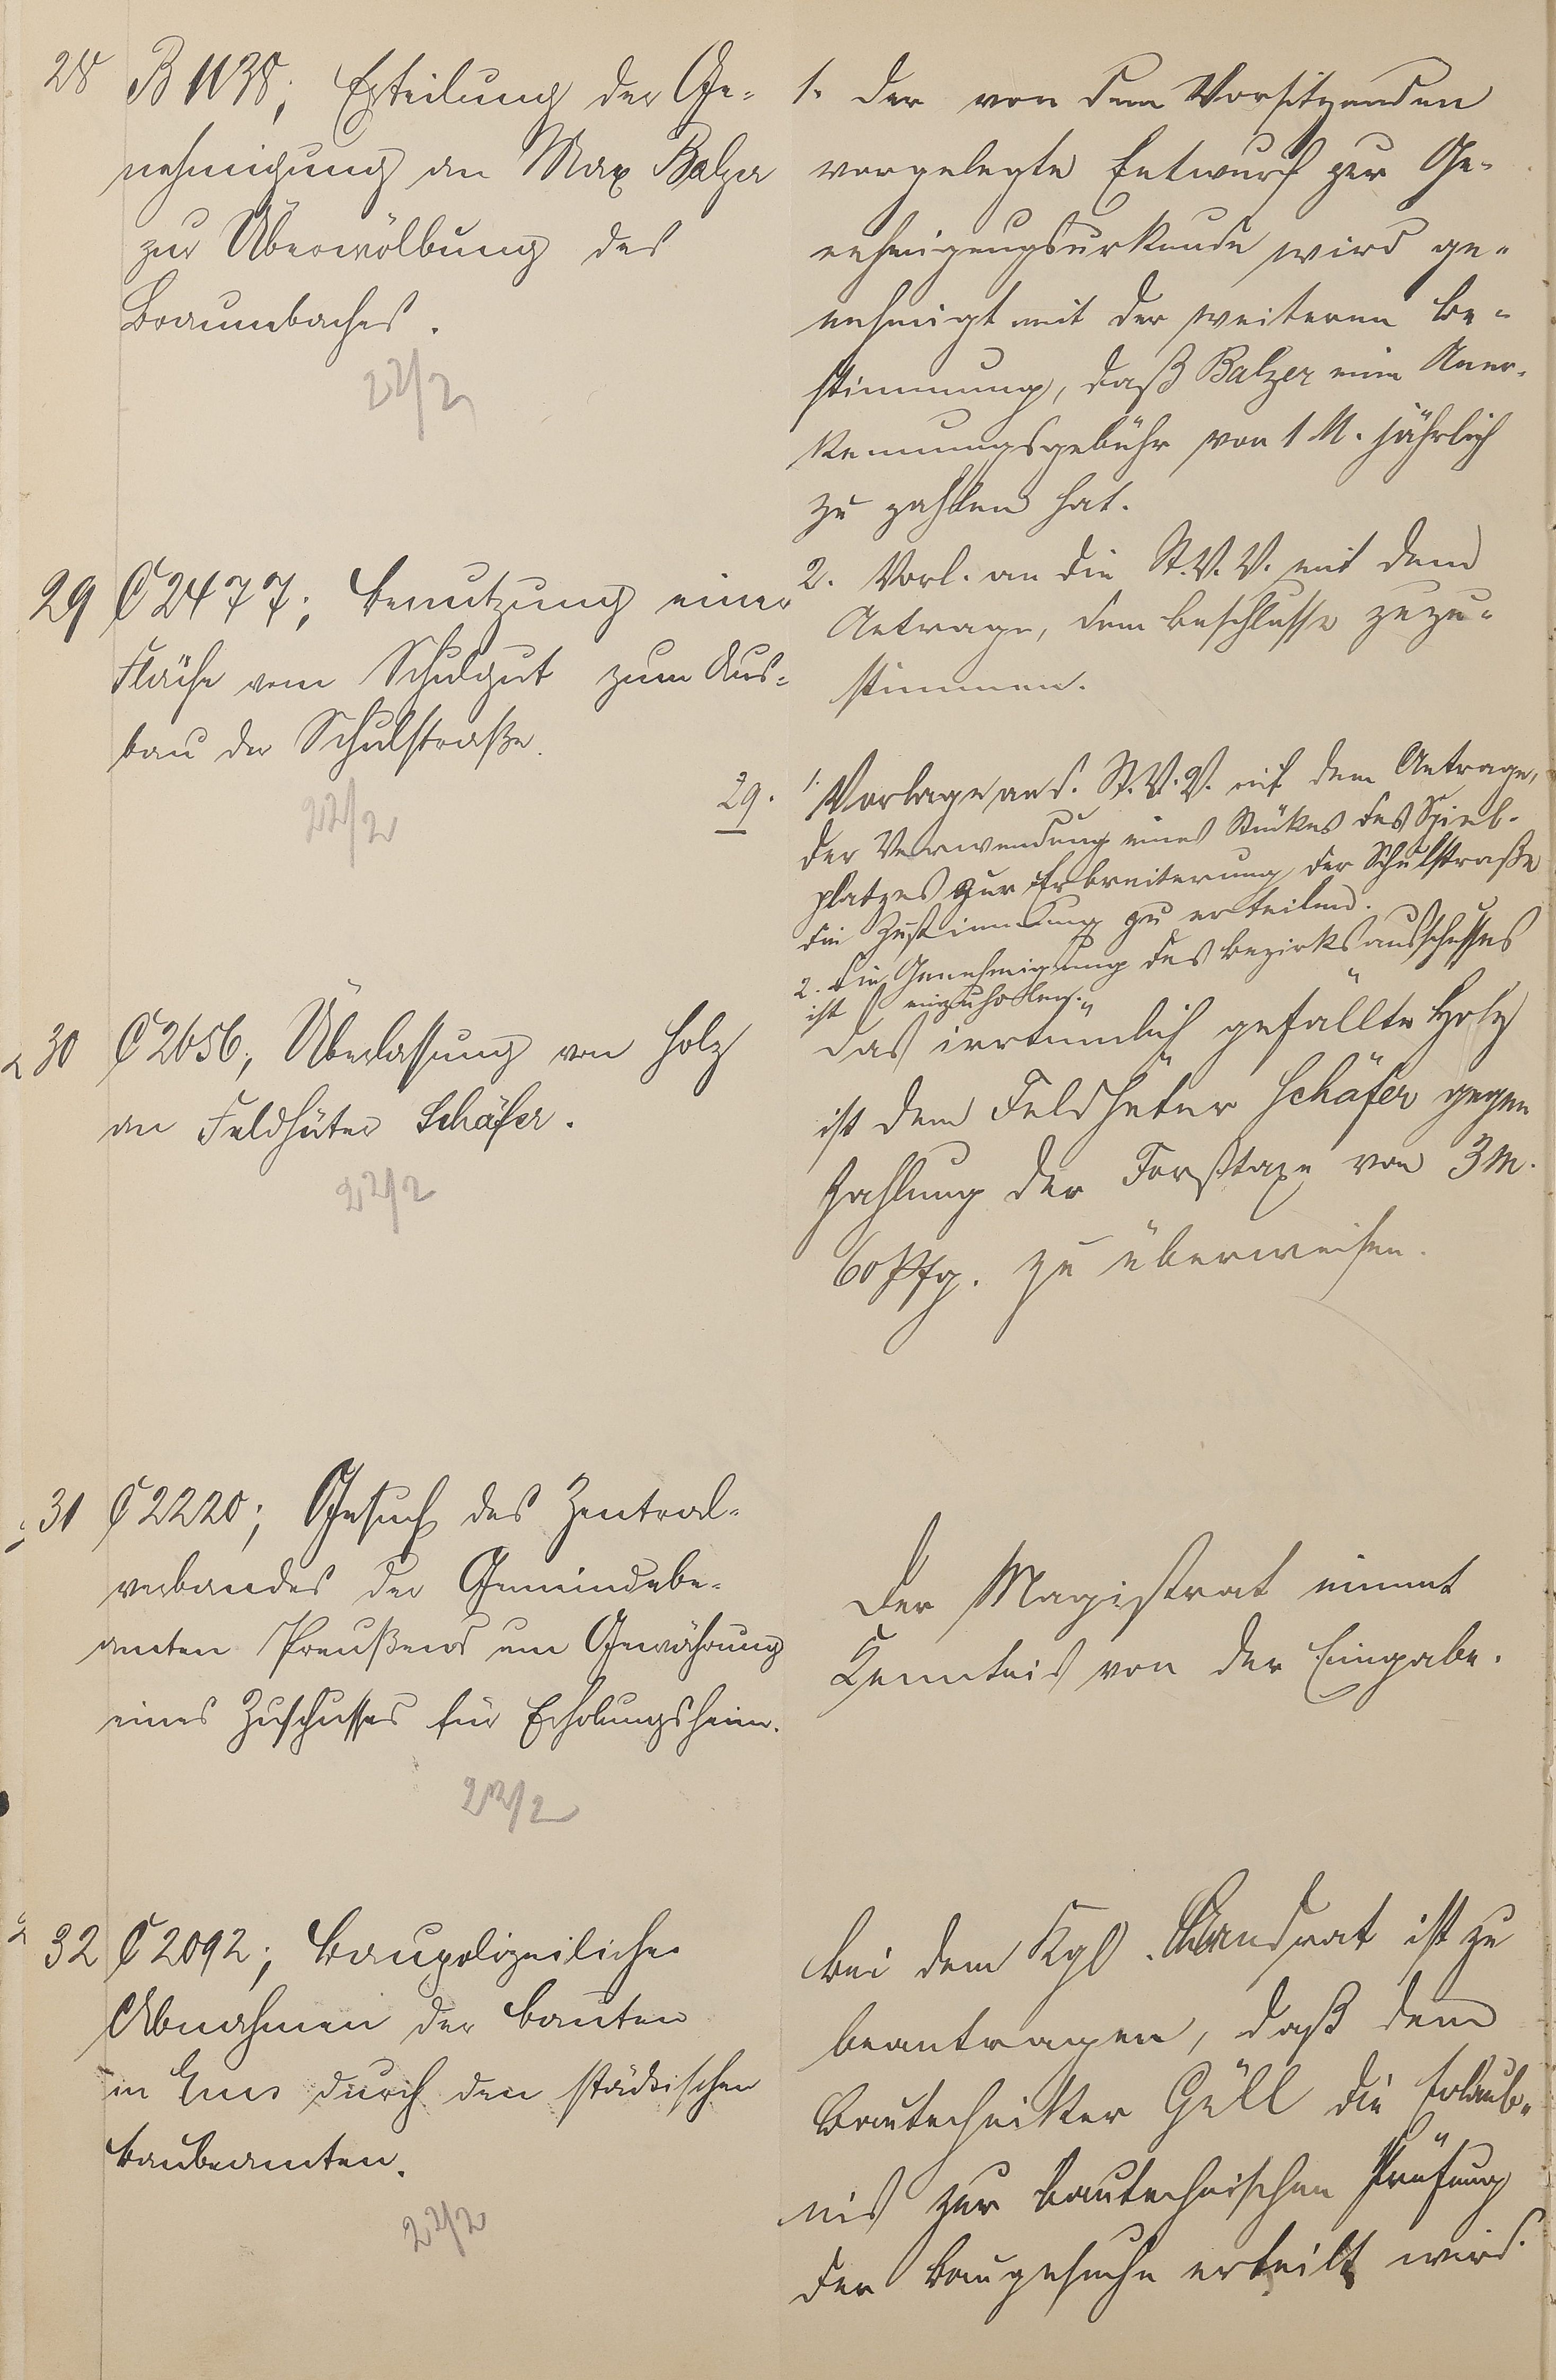 28 B 1138; Erteilung der Ge-
nehmigung an Max Balzer
zur Überwölbung des
Braunebaches.
22/2
1. Der von dem Vorsitzenden
vorgelegte Entwurf zur Ge-
nehmigungsurkunde wird ge-
nehmigt mit der weiteren Be-
stimmung, daß Balzer eine Aner-
kennungsgebühr von 1 M. jährlich
zu zahlen hat.
2. Vorl. an die St.V.V. mit dem
Antrage, dem Beschlusse zuzu-
stimmen.
29 C 2477; Benutzung einer
Fläche vom Schulgut zum Aus-
bau der Schulstraße.
22/2
29. 1. Vorlage an d. St.V.V. mit dem Antrage,
der Verwendung eines Stückes des Spiel-
platzes zur Erbreiterung der Schulstraße
die Zustimmung zu erteilen.
2. Die Genehmigung des Bezirksausschusses
ist einzuholen.
30 C 2656; Überlassung von Holz
an Feldhüter Schäfer.
22/2
Das irrtümlich gefällte Holz
ist dem Feldhüter Schäfer gegen
Zahlung der Forsttaxe von 3 M.
60 Pfg. zu überweisen.
31 C 2220; Gesuch des Zentral-
verbandes der Gemeindebe-
amten Preußens um Gewährung
eines Zuschusses für Erholungsheim.
22/2
Der Magistrat nimmt
Kenntnis von der Eingabe.
32 C 2092; Baupolizeiliche
Abnahmen der Bauten
in Ems durch den städtischen
Baubeamten.
22/2
Bei dem Kgl. Landrat ist zu
beantragen, daß dem
Bautechniker Güll die Erlaub-
nis zur bautechnischen Prüfung
der Baugesuche erteilt wird.